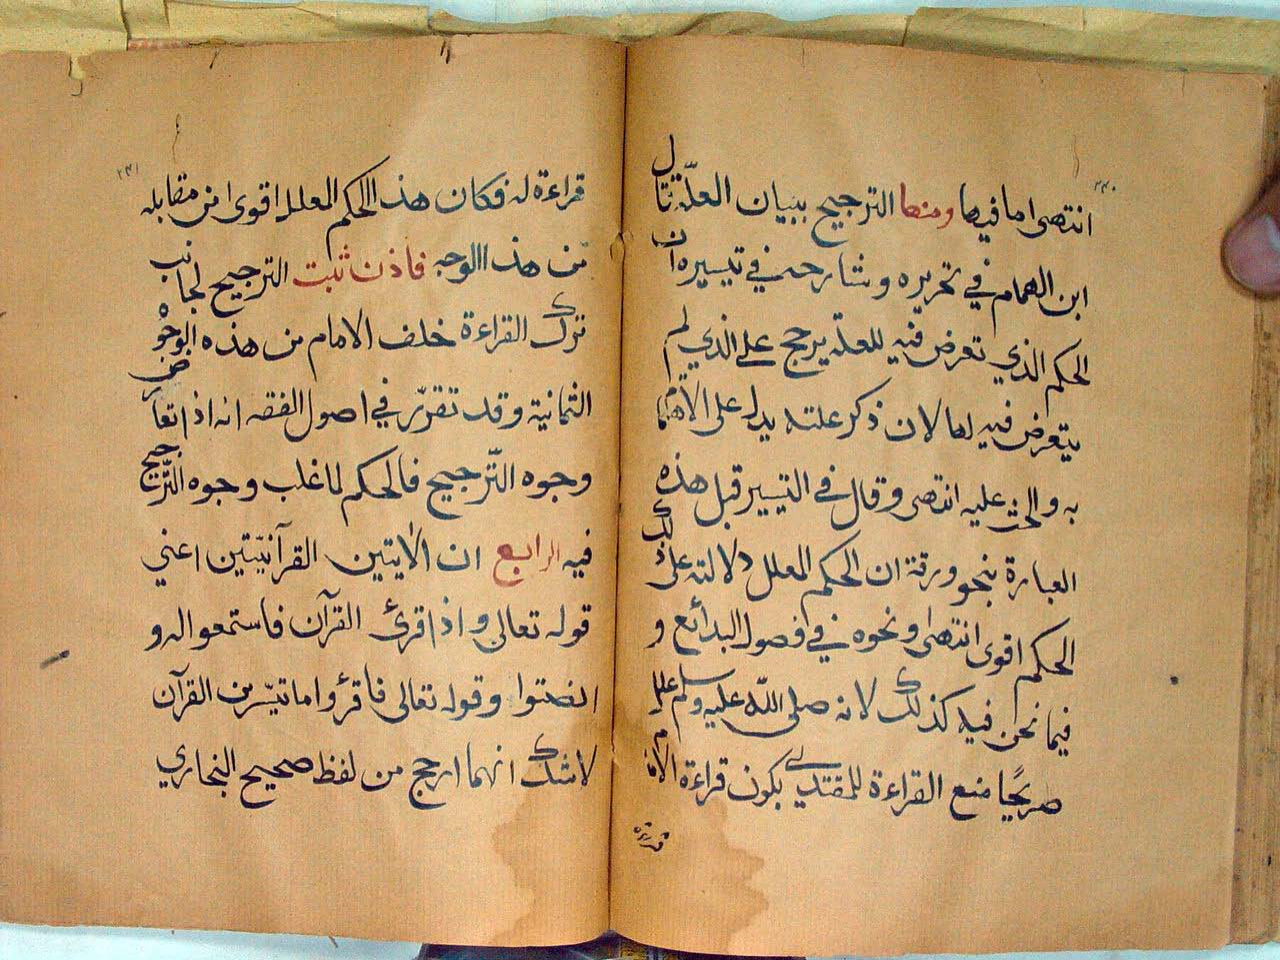 ٢٤٠
انتهى اما فيها ومنها الترجيح ببيان العلّة قال
ابن الهمام في تحريره وشارحه في تيسيره ان
الحكم الذي تعرض فيه للعلة يرجح على الذي لم
يتعرض فيه لها لان ذكر علته يدل على الاهتمام
به والحث عليه انتهى وقال في التيسير قبل هذه
العبارة بنحو ورقة ان الحكم المعلل دلالته على ذلك
الحكم اقوى انتهى ونحوه في فصول البدائع و
فيما نحن فيه كذلك لانه صلى الله عليه وسلم علل
صريحًا منع القراءة للمقتدي بكون قراءة الامام
قراءة
٢٤١
قراءة له فكان هذا الحكم المعلل اقوى من مقابله
من هذا الوجه فاذن ثبت الترجيح لجانب
ترك القراءة خلف الامام من هذه الوجوه
الثمانية وقد تقرّر في اصول الفقه انه اذا تعارض
وجوه التّرجيح فالحكم لما غلب وجوه التّرجيح
فيه الرابع ان الايتين القرآنيّتين اعني
قوله تعالى واذا قرئ القرآن فاستمعوا له و
انصتوا وقوله تعالى فاقرؤا ما تيسّر من القرآن
لاشك انهما ارجح من لفظ صحيح البخاري